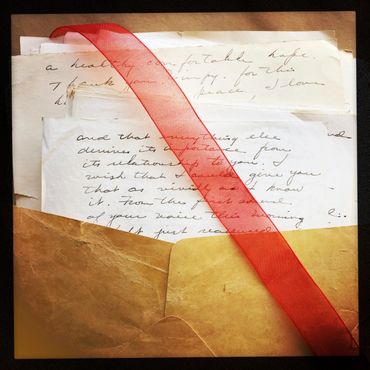 a healthy comfortable hope.
Thank you, for this
peace, I love
and that everything else
derives its importance from
its relationship to you. I
wish that I could give you
that as vividly as I know
it. From the first sound
of your voice this morning
I felt just